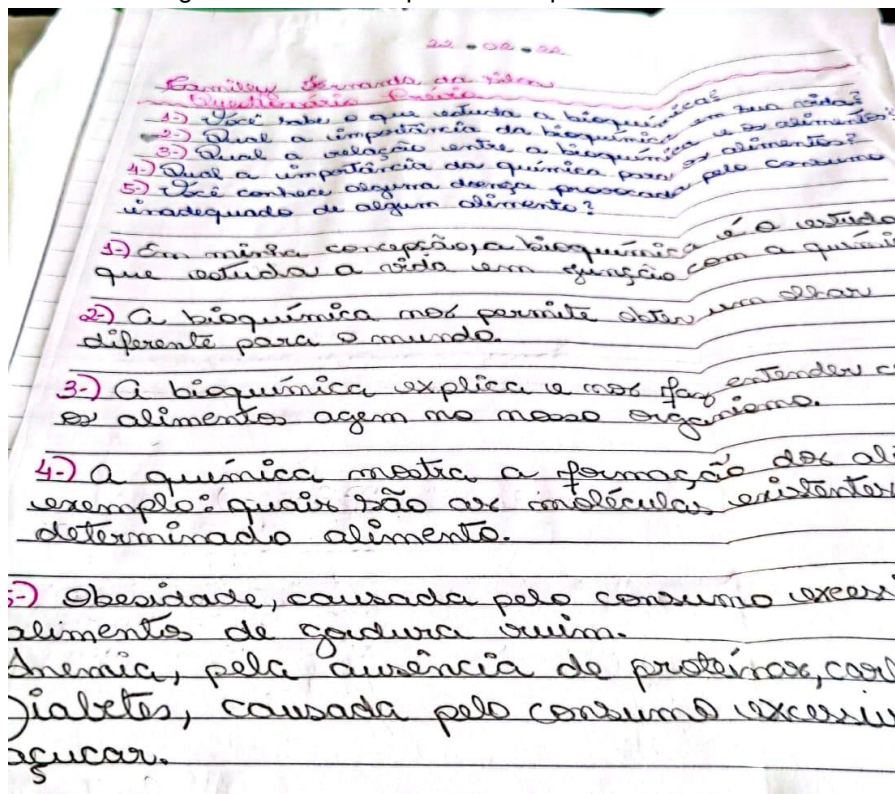 22 • 02 • 22
Fernanda da Silva
Questionário Prévio
1-) Você sabe o que estuda a bioquímica?
2-) Qual a importância da bioquímica em sua vida?
3-) Qual a relação entre a bioquímica e os alimentos?
4-) Qual a importância da química para os alimentos?
5-) Você conhece alguma doença provocada pelo consumo
inadequado de algum alimento?
1-) Em minha concepção, a bioquímica é o estudo
que estuda a vida em junção com a quími
2-) A bioquímica nos permite obter um olhar
diferente para o mundo.
3-) A bioquímica explica e nos faz entender c
os alimentos agem no nosso organismo.
4-) A química mostra a formação dos ali
exemplo: quais são as moléculas existentes
determinado alimento.
5-) Obesidade, causada pelo consumo excessi
alimentos de gordura ruim.
Anemia, pela ausência de proteínas, carb
Diabetes, causada pelo consumo excessiv
açucar.